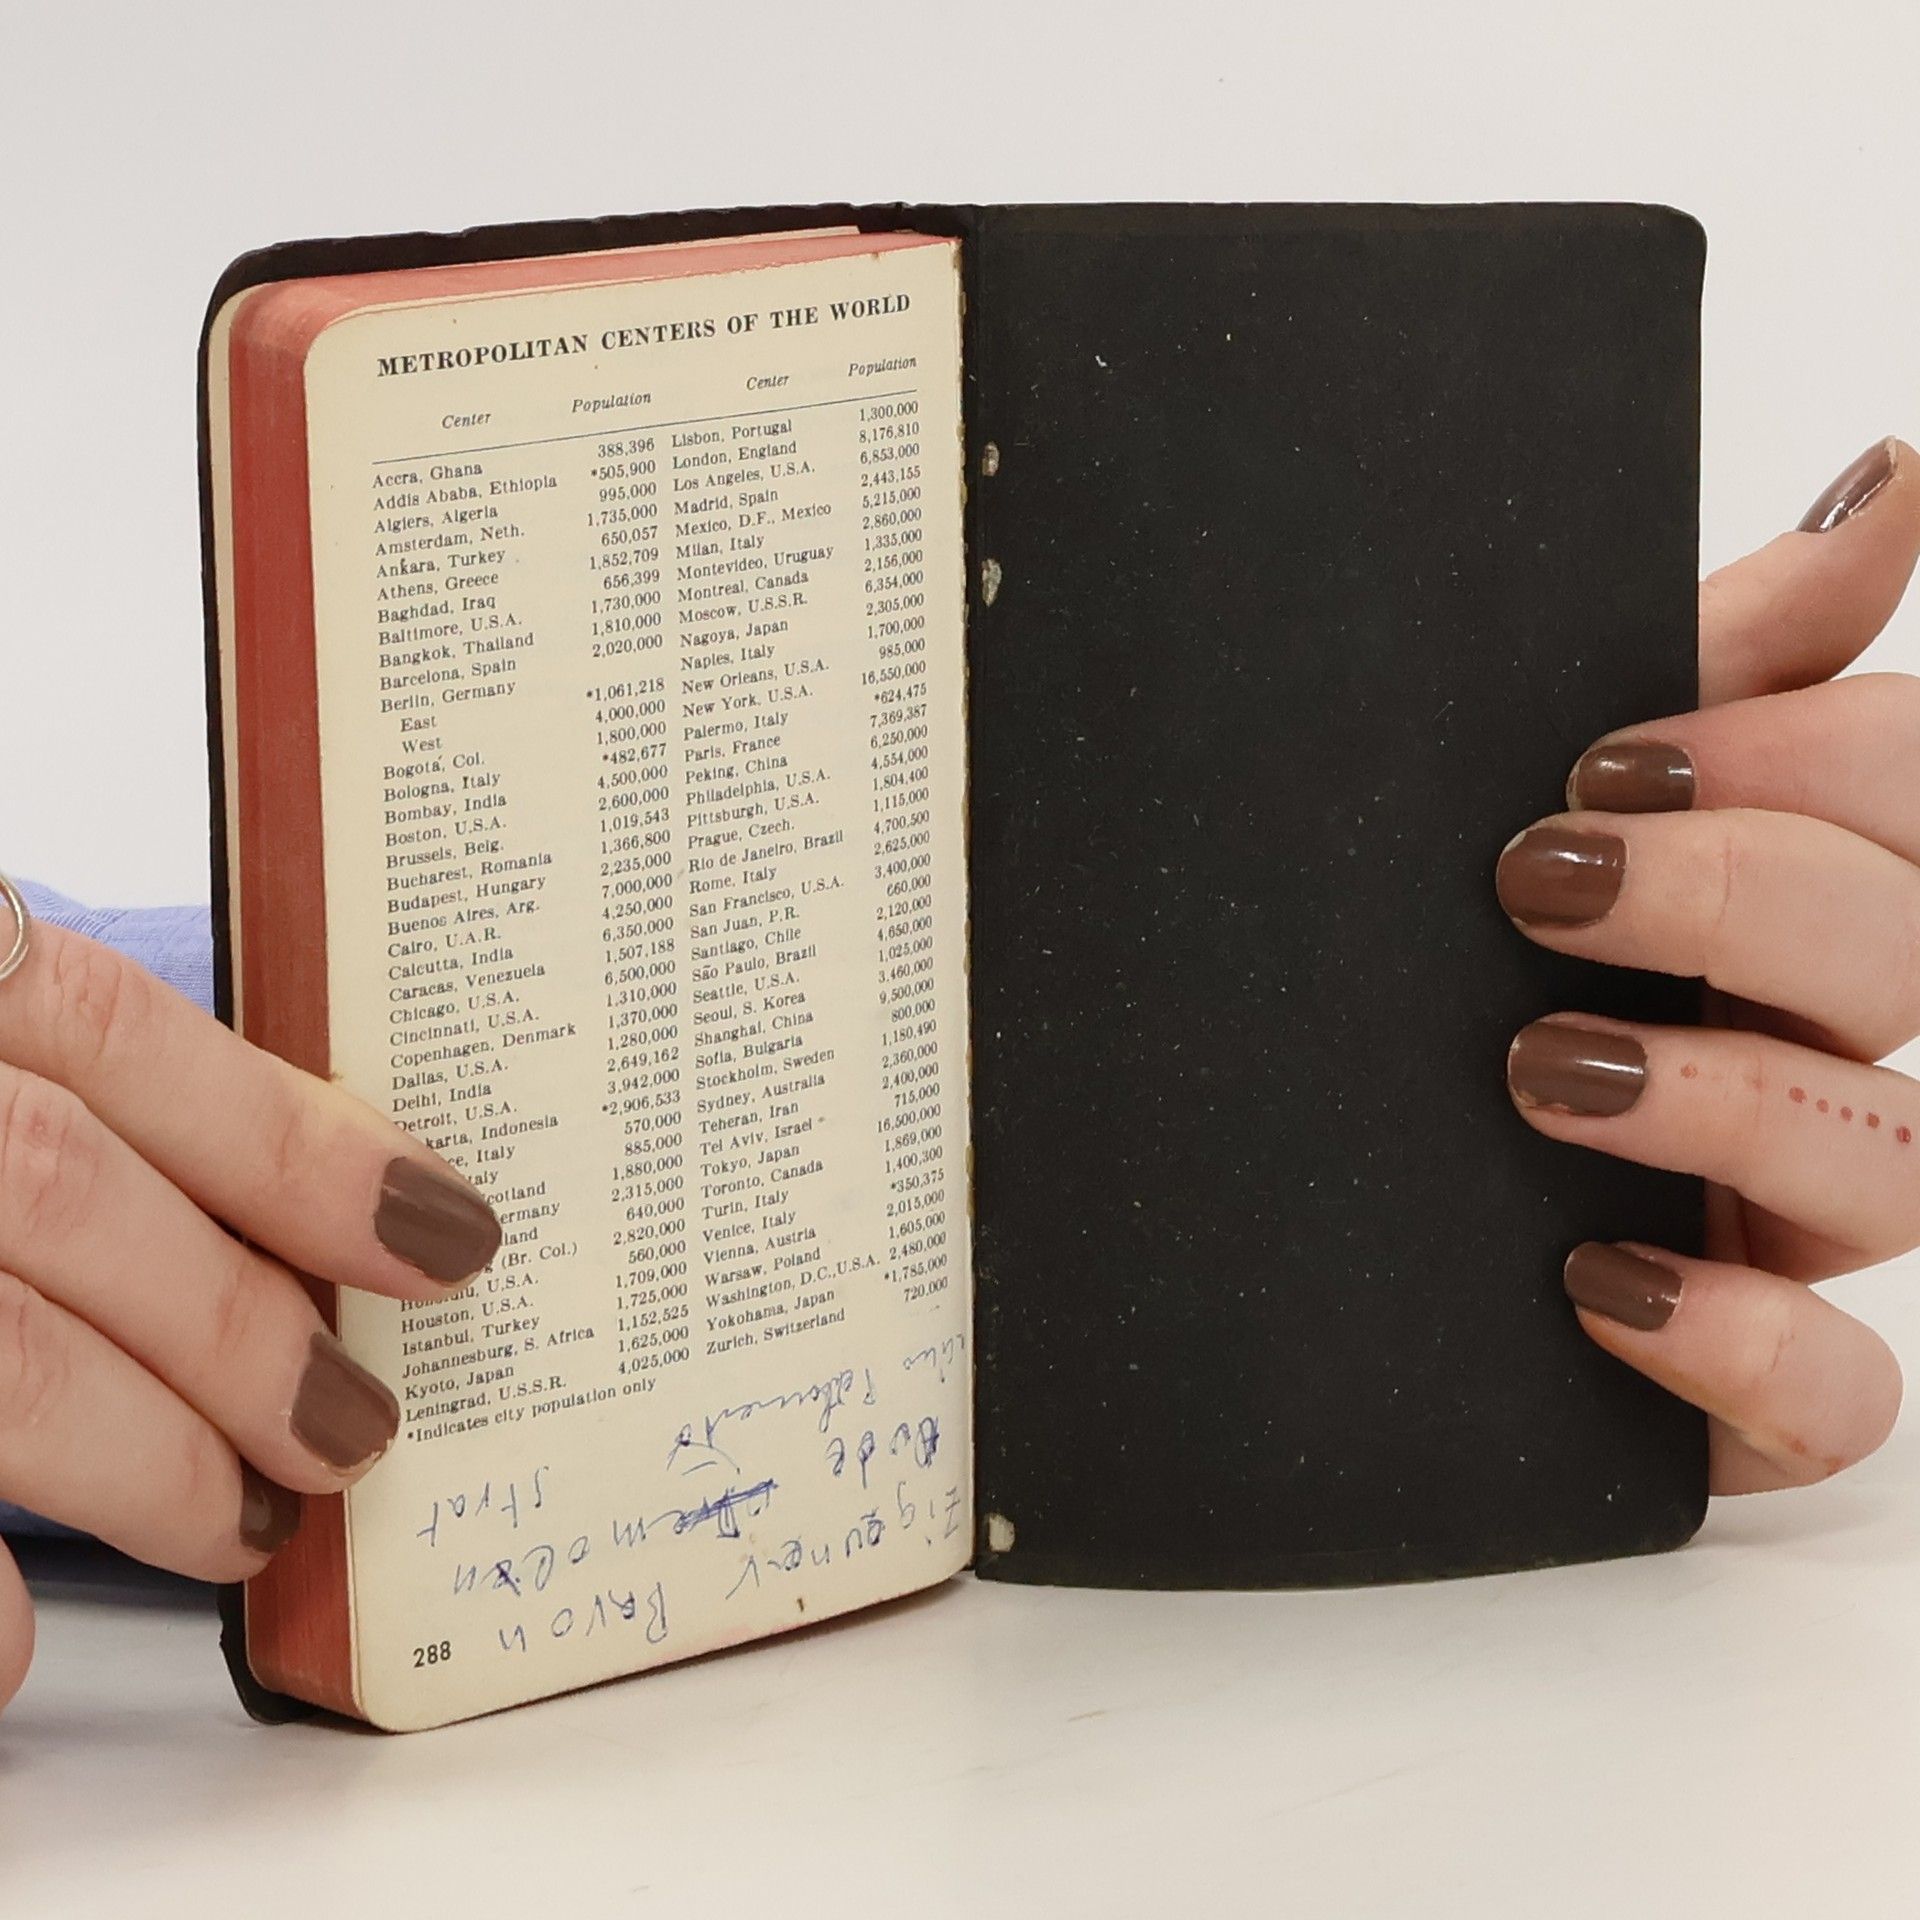 METROPOLITAN CENTERS OF THE WORLD
Center Population Center Population
Accra, Ghana 388,396 Lisbon, Portugal 1,300,000
Addis Ababa, Ethiopia *505,900 London, England 8,176,810
Algiers, Algeria 995,000 Los Angeles, U.S.A. 6,853,000
Amsterdam, Neth. 1,735,000 Madrid, Spain 2,443,155
Ankara, Turkey 650,057 Mexico, D.F., Mexico 5,215,000
Athens, Greece 1,852,709 Milan, Italy 2,860,000
Baghdad, Iraq 656,399 Montevideo, Uruguay 1,335,000
Baltimore, U.S.A. 1,730,000 Montreal, Canada 2,156,000
Bangkok, Thailand 1,810,000 Moscow, U.S.S.R. 6,354,000
Barcelona, Spain 2,020,000 Nagoya, Japan 2,305,000
Berlin, Germany Naples, Italy 1,700,000
East *1,061,218 New Orleans, U.S.A. 985,000
West 4,000,000 New York, U.S.A. 16,550,000
Bogotá, Col. 1,800,000 Palermo, Italy *624,475
Bologna, Italy *482,677 Paris, France 7,369,387
Bombay, India 4,500,000 Peking, China 6,250,000
Boston, U.S.A. 2,600,000 Philadelphia, U.S.A. 4,554,000
Brussels, Belg. 1,019,543 Pittsburgh, U.S.A. 1,804,400
Bucharest, Romania 1,366,800 Prague, Czech. 1,115,000
Budapest, Hungary 2,235,000 Rio de Janeiro, Brazil 4,700,500
Buenos Aires, Arg. 7,000,000 Rome, Italy 2,625,000
Cairo, U.A.R. 4,250,000 San Francisco, U.S.A. 3,400,000
Calcutta, India 6,350,000 San Juan, P.R. 660,000
Caracas, Venezuela 1,507,188 Santiago, Chile 2,120,000
Chicago, U.S.A. 6,500,000 São Paulo, Brazil 4,650,000
Cincinnati, U.S.A. 1,310,000 Seattle, U.S.A. 1,025,000
Copenhagen, Denmark 1,370,000 Seoul, S. Korea 3,460,000
Dallas, U.S.A. 1,280,000 Shanghai, China 9,500,000
Delhi, India 2,649,162 Sofia, Bulgaria 800,000
Detroit, U.S.A. 3,942,000 Stockholm, Sweden 1,180,490
karta, Indonesia *2,906,533 Sydney, Australia 2,360,000
ce, Italy 570,000 Teheran, Iran 2,400,000
taly 885,000 Tel Aviv, Israel 715,000
cotland 1,880,000 Tokyo, Japan 16,500,000
ermany 2,315,000 Toronto, Canada 1,869,000
land 640,000 Turin, Italy 1,400,300
g (Br. Col.) 2,820,000 Venice, Italy *350,375
Honolulu, U.S.A. 560,000 Vienna, Austria 2,015,000
Houston, U.S.A. 1,709,000 Warsaw, Poland 1,605,000
Istanbul, Turkey 1,725,000 Washington, D.C.,U.S.A. 2,480,000
Johannesburg, S. Africa 1,152,525 Yokohama, Japan *1,785,000
Kyoto, Japan 1,625,000 Zurich, Switzerland 720,000
Leningrad, U.S.S.R. 4,025,000
*Indicates city population only
Baron
Strat
288